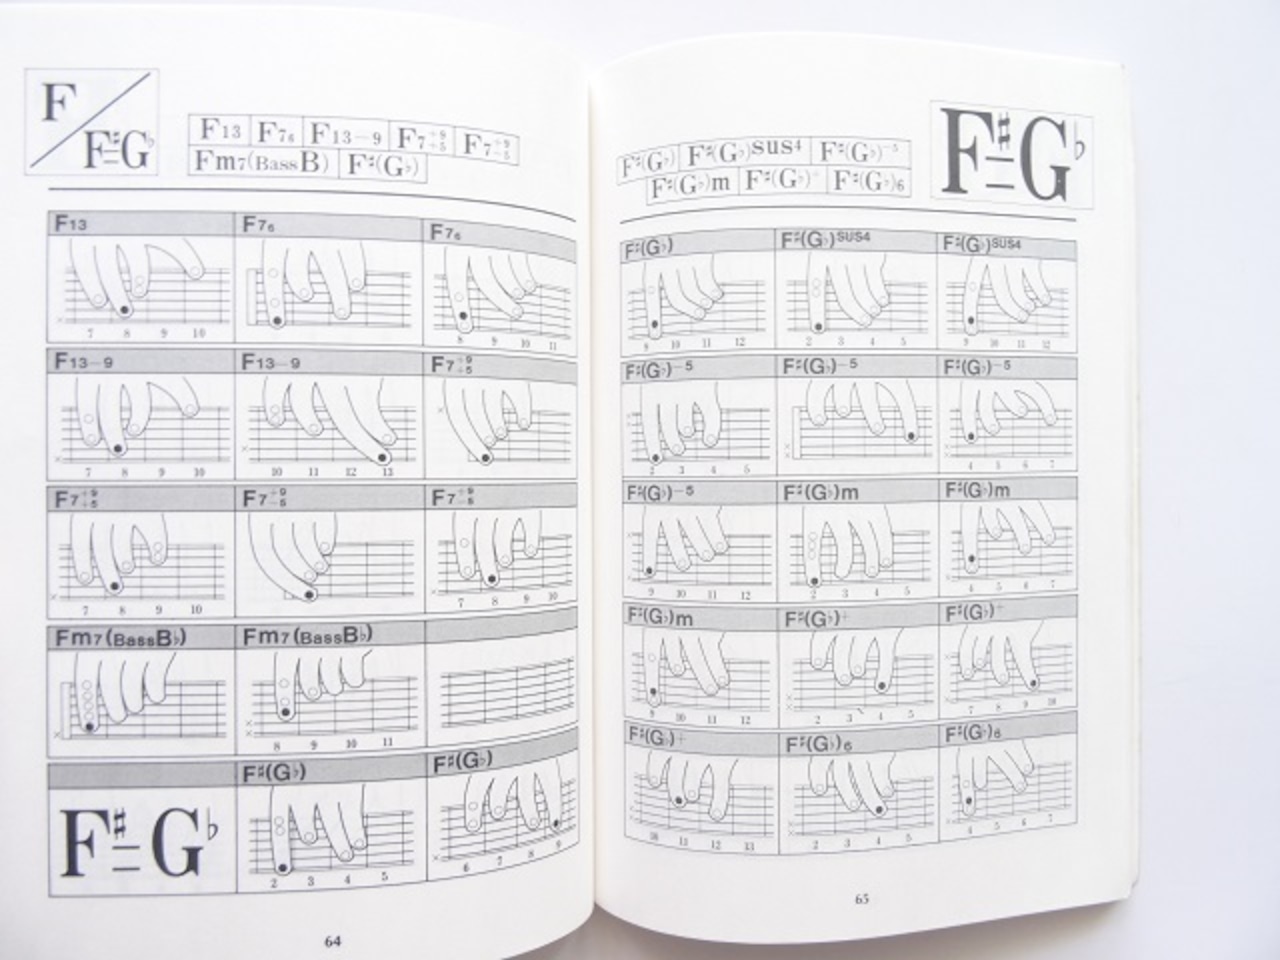 F
F♯G♭
F13 F7₆ F13−9 F7⁺⁹₊₅ F7⁺⁹₋₅
Fm7(BassB♭) F♯(G♭)
F13 F7₆ F7₆
7 8 9 10
8 9 10 11
F13−9 F13−9 F7⁺⁹₊₅
7 8 9 10 10 11 12 13
F7⁺⁹₊₅ F7⁺⁹₋₅ F7⁺⁹₋₅
7 8 9 10 7 8 9 10
Fm7(BassB♭) Fm7(BassB♭)
8 9 10 11
F♯(G♭) F♯(G♭)
F♯−G♭
2 3 4 5 6 7 8 9
64
F♯−G♭
F♯(G♭) F♯(G♭)sus4 F♯(G♭)−5
F♯(G♭)m F♯(G♭)+ F♯(G♭)6
F♯(G♭) F♯(G♭)SUS4 F♯(G♭)SUS4
9 10 11 12 2 3 4 5 9 10 11 12
F♯(G♭)−5 F♯(G♭)−5 F♯(G♭)−5
2 3 4 5 4 5 6 7
F♯(G♭)−5 F♯(G♭)m F♯(G♭)m
9 10 11 12 2 3 4 5 4 5 6 7
F♯(G♭)m F♯(G♭)+ F♯(G♭)+
9 10 11 12 2 3 4 5 7 8 9 10
F♯(G♭)+ F♯(G♭)6 F♯(G♭)6
10 11 12 13 2 3 4 5 4 5 6 7
65